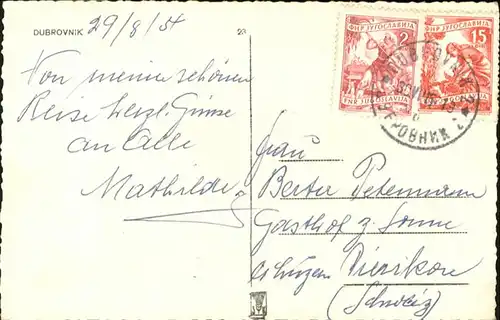 DUBROVNIK
23
29/8/54
Von meine schönen
Reise herzl. Grüsse
an Alle
Mathilde
ФНР ЈУГОСЛАВИЈА
2
FNR JUGOSLAVIJA
ФНР ЈУГОСЛАВИЈА
15
FNR JUGOSLAVIJA
DUBROVNIK
Frau
Berta Petermann
Gasthof z. Sonne
(Schweiz)